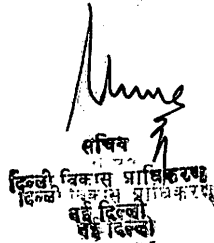 सचिव
दिल्ली विकास प्राधिकरण
दिल्ली विकास प्राधिकरण
नई दिल्ली
नई दिल्ली